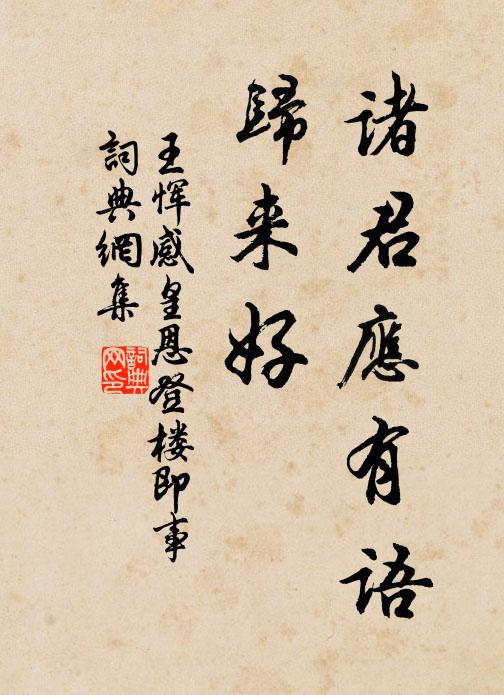 諸君應有語
歸来好
王惲感皇恩登楼即事
詞典網集
詞典
网印